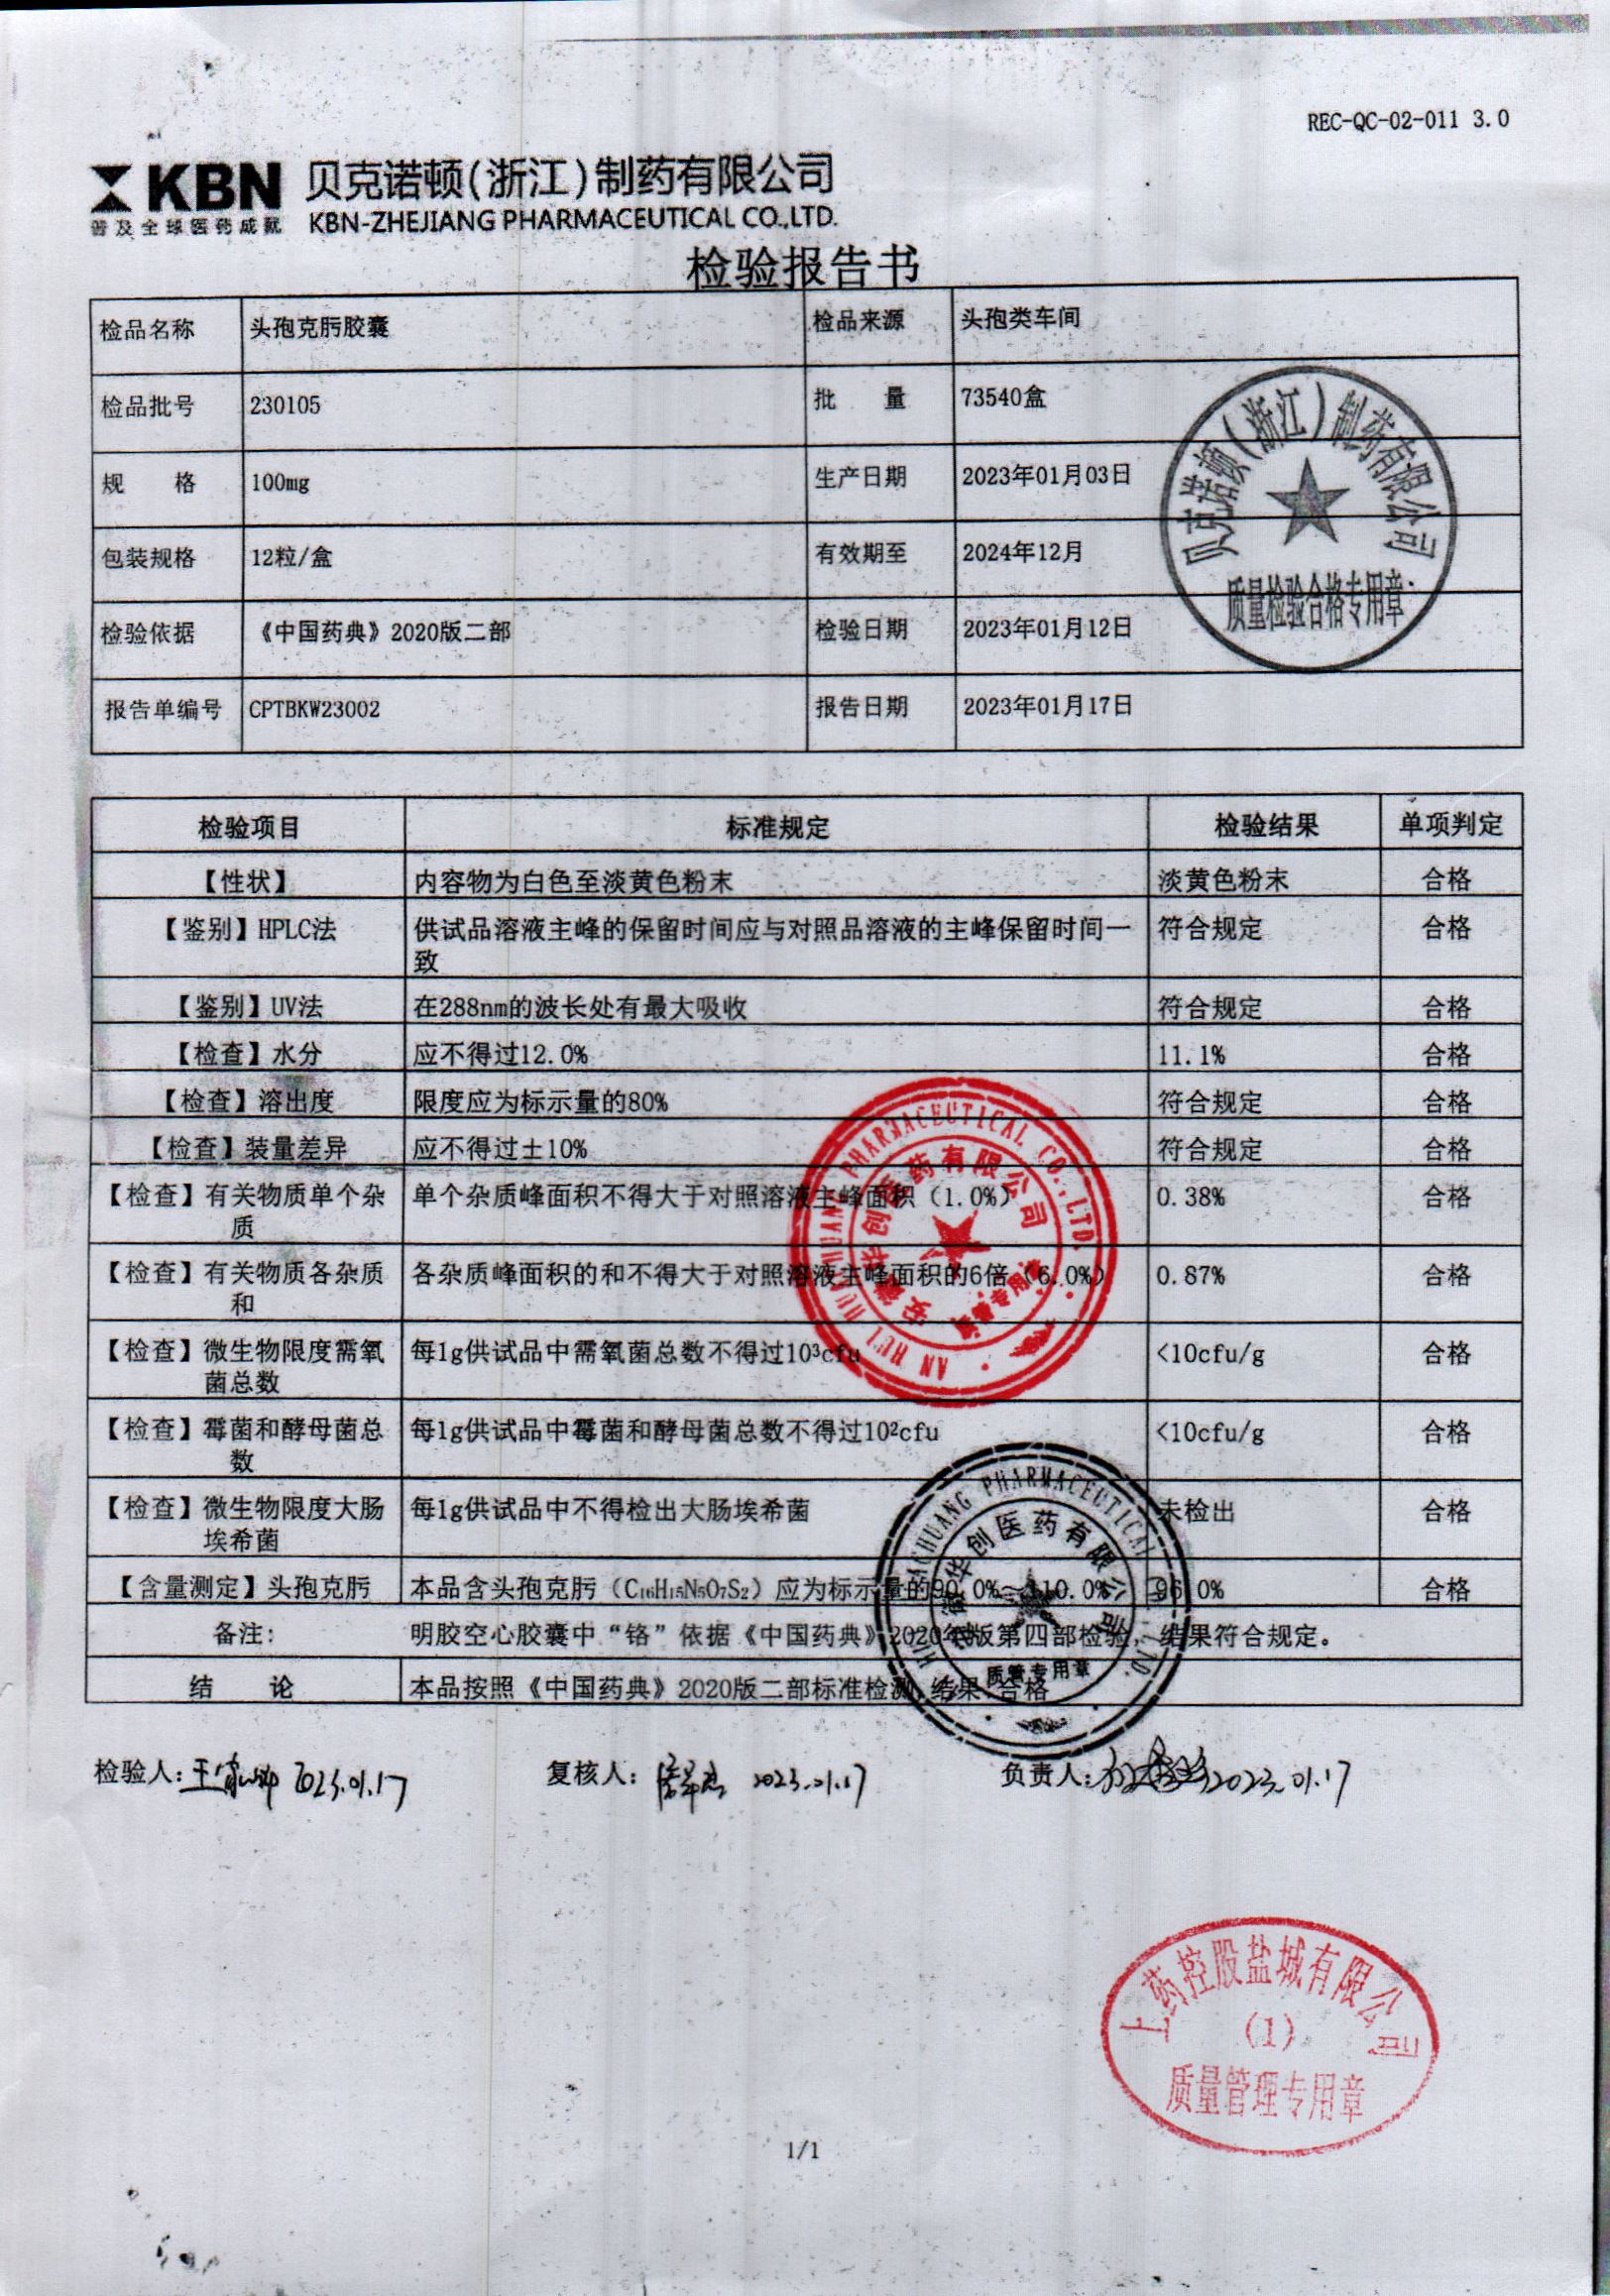 REC-QC-02-011 3.0
KBN 贝克诺顿(浙江)制药有限公司
普及全球医药成就 KBN-ZHEJIANG PHARMACEUTICAL CO.,LTD.
检验报告书
检品名称 头孢克肟胶囊 检品来源 头孢类车间
检品批号 230105 批 量 73540盒
规 格 100mg 生产日期 2023年01月03日
包装规格 12粒/盒 有效期至 2024年12月
检验依据 《中国药典》2020版二部 检验日期 2023年01月12日
报告单编号 CPTBKW23002 报告日期 2023年01月17日
贝克诺顿(浙江)制药有限公司
质量检验合格专用章
检验项目 标准规定 检验结果 单项判定
【性状】 内容物为白色至淡黄色粉末 淡黄色粉末 合格
【鉴别】HPLC法 供试品溶液主峰的保留时间应与对照品溶液的主峰保留时间一 符合规定 合格
致
【鉴别】UV法 在288nm的波长处有最大吸收 符合规定 合格
【检查】水分 应不得过12.0% 11.1% 合格
【检查】溶出度 限度应为标示量的80% 符合规定 合格
【检查】装量差异 应不得过±10% 符合规定 合格
【检查】有关物质单个杂 单个杂质峰面积不得大于对照溶液主峰面积（1.0%） 0.38% 合格
质
【检查】有关物质各杂质 各杂质峰面积的和不得大于对照溶液主峰面积的6倍（6.0%） 0.87% 合格
和
【检查】微生物限度需氧 每1g供试品中需氧菌总数不得过10³cfu <10cfu/g 合格
菌总数
【检查】霉菌和酵母菌总 每1g供试品中霉菌和酵母菌总数不得过10²cfu <10cfu/g 合格
数
【检查】微生物限度大肠 每1g供试品中不得检出大肠埃希菌 未检出 合格
埃希菌
【含量测定】头孢克肟 本品含头孢克肟（C₁₆H₁₅N₅O₇S₂）应为标示量的90.0%~110.0% 96.0% 合格
备注: 明胶空心胶囊中“铬”依据《中国药典》2020年版第四部检验，结果符合规定。
结 论 本品按照《中国药典》2020版二部标准检测,结果:合格
AN HUI HUACHUANG PHARMACEUTICAL CO.,LTD.
安徽华创医药有限公司
质管专用章
HUACHUANG PHARMACEUTICAL CO.,LTD.
安徽华创医药有限公司
质管专用章
检验人: 2023.01.17 复核人: 2023.01.17 负责人: 2023.01.17
上药控股盐城有限公司
(1)
质量管理专用章
1/1